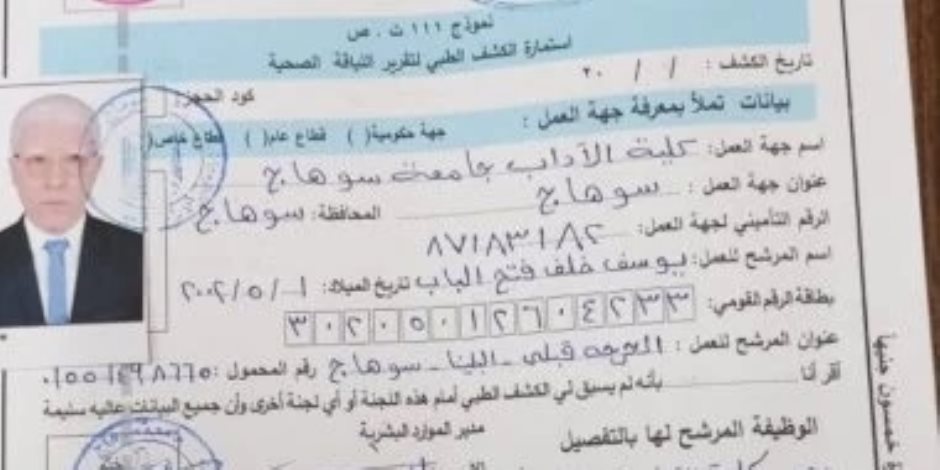 نموذج ١١١ ت . ص
استمارة الكشف الطبي لتقرير اللياقة الصحية
تاريخ الكشف : / / ٢٠
كود الحجز
بيانات تملأ بمعرفة جهة العمل :
جهة حكومية( ) قطاع عام( ) قطاع خاص(
اسم جهة العمل: كلية الآداب جامعة سوهاج
عنوان جهة العمل : سوهاج المحافظة: سوهاج
الرقم التأميني لجهة العمل: ٨٧١٨٣١٨٢
اسم المرشح للعمل: يوسف خلف فتح الباب تاريخ الميلاد: ١ / ٥ / ٢٠٠٢
بطاقة الرقم القومي: ٣٠٢٠٥٠١٢٦٠٤٢٣٣
عنوان المرشح للعمل : قبلي - البلينا - سوهاج رقم المحمول :
أقر أنا بأنه لم يسبق لي الكشف الطبي أمام هذه اللجنة أو أي لجنة أخرى وأن جميع البيانات عاليه سليمة
الوظيفة المرشح لها بالتفصيل
مدير الموارد البشرية
خمسون جنيها